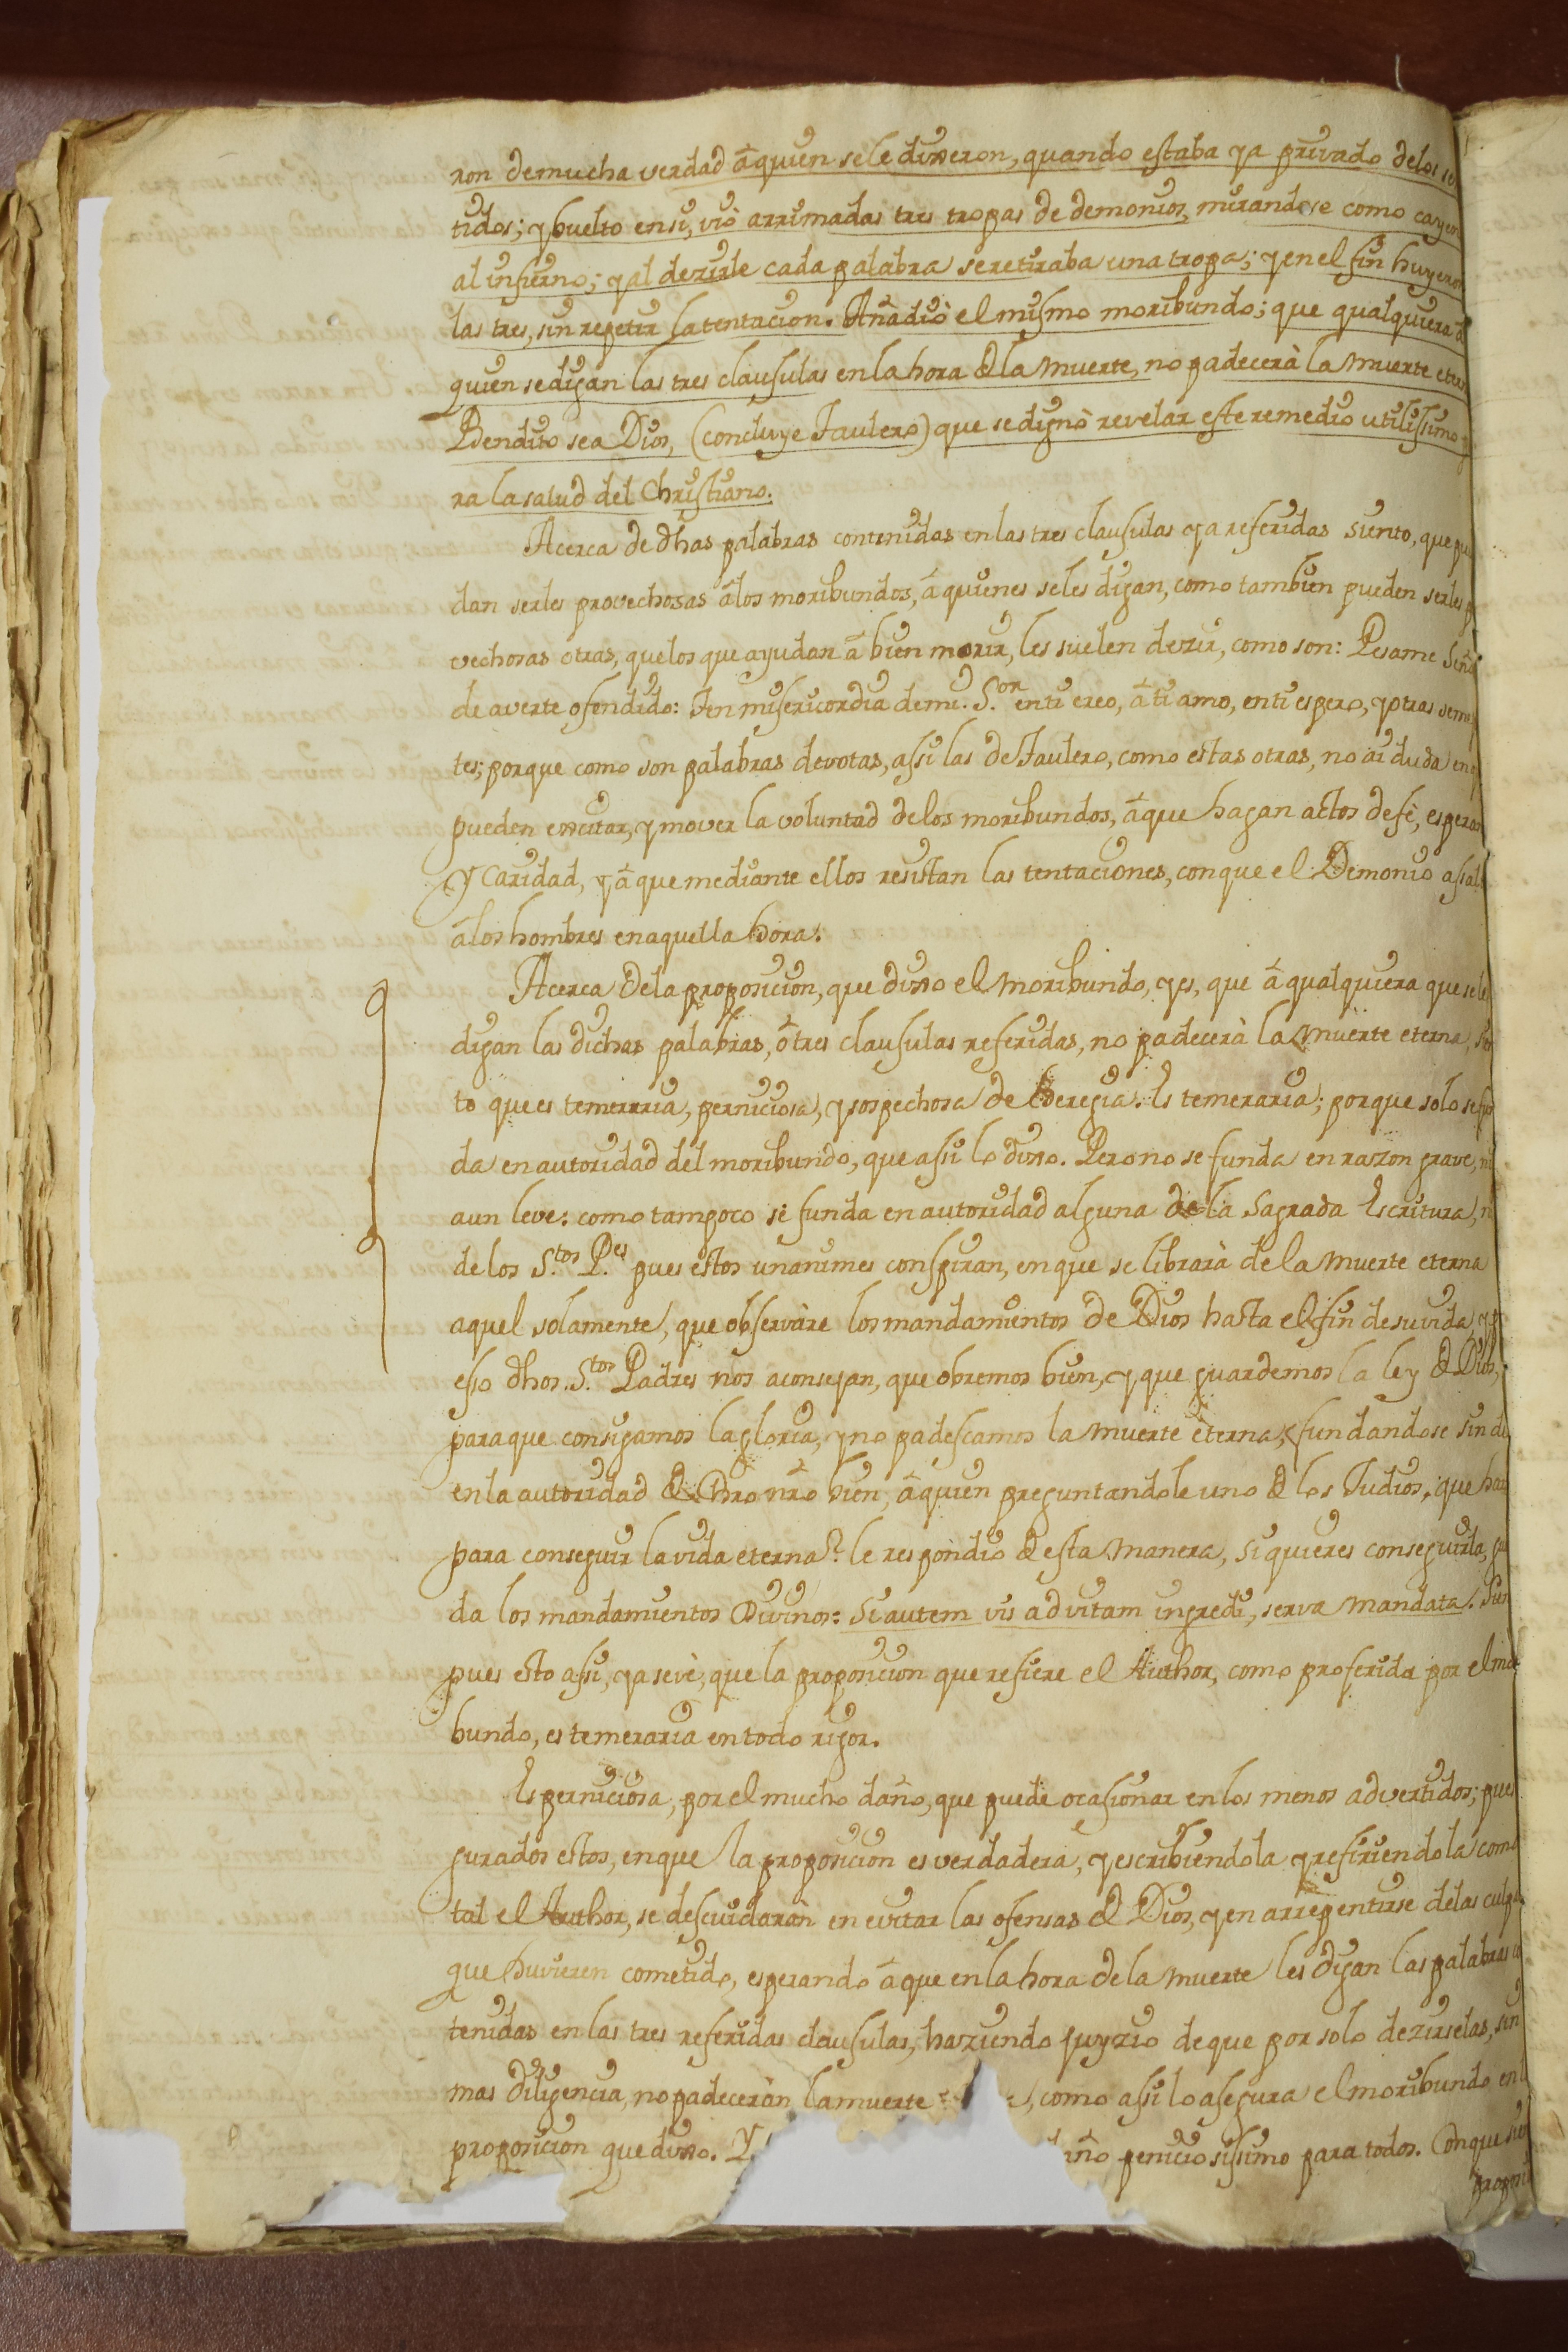 ron demucha verdad â quien se le dixeron, quando estaba ya privado delos
tidos; y buelto en si, viò arrimadas tres tropas de demonios, mirandose como cayeron
al infierno; y al dezirle cada palabra se retiraba una tropa; y en el fin huyeron
las tres, sin repetir la tentacion. Añadiò el mismo moribundo; que qualquiera
quien se digan las tres clausulas en la hora de la muerte, no padecerà la muerte
Bendito sea Dios, (concluye Taulero) que se dignò revelar este remedio utilissimo
ra la salud del Christiano.
Acerca de dhas palabras contenidas en las tres clausulas ya referidas siento, que
dan serles provechosas â los moribundos, â quienes se les digan, como tambien pueden serles
vechosas otras, que los que ayudan â bien morir, les suelen dezir, como son: Pesame Señor
de averte ofendido: Ten misericordia de mi. S.or en ti creo, â ti amo, en ti espero, y otras
tes; porque como son palabras devotas, assi las de Taulero, como estas otras, no ai duda en
pueden excitar, y mover la voluntad de los moribundos, â que hagan actos de fè,
y Caridad, y â que mediante ellos resistan las tentaciones, con que el Demonio
â los hombres en aquella hora.
Acerca dela proposicion, que dixo el moribundo, y es, que â qualquiera que se le
digan las dichas palabras, ô tres clausulas referidas, no padecerà la muerte eterna,
to que es temeraria, perniciosa, y sospechosa de heregia. Es temeraria; porque solo se
da en autoridad del moribundo, que assi lo dixo. Pero no se funda en razon grave, ni
aun leve: como tampoco se funda en autoridad alguna de la Sagrada Escritura,
de los S.tos P.es pues estos unanimes conspiran, en que se librarà de la muerte eterna
aquel solamente, que observàre los mandamientos de Dios hasta el fin de su vida,
esso dhos. S.tos Padres nos aconsejan, que obremos bien, y que guardemos la ley de Dios,
para que consigamos la gloria, y no padescamos la muerte eterna, fundandose sin
en la autoridad de Chro nrô bien, â quien preguntandole uno de los Judios, que
para conseguir la vida eterna? le respondiò de esta manera, si quieres conseguirla,
da los mandamientos Divinos: Si autem vis ad vitam ingredi, serva mandata.
pues esto assi, ya se vè, que la proposicion que refiere el Author, como proferida por el
bundo, es temeraria en todo rigor.
Es perniciosa, por el mucho daño, que puede ocasionar en los menos advertidos;
gurados estos, en que la proposicion es verdadera, y escribiendola y refiriendola como
tal el Author, se descuidaràn en evitar las ofensas de Dios, y en arrepentirse delas
que huvieren cometido, esperando â que en la hora de la muerte les digan las palabras
tenidas en las tres referidas clausulas, haziendo juyzio de que por solo dezirselas, sin
mas diligencia, no padeceràn la muerte, como assi lo asegura el moribundo en
proposicion que dixo. Y daño peniciosissimo para todos. Conque